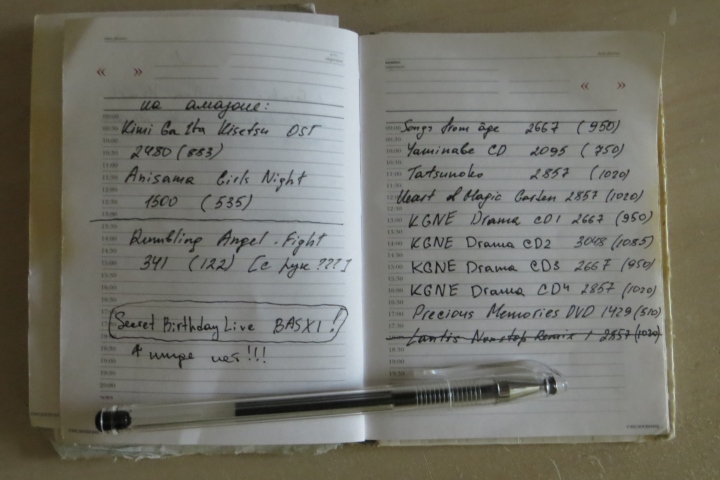 на амазоне:
Kimi Ga Ita Kisetsu OST
2480 (883)
Anisama Girls Night
1500 (535)
Rumbling Angel. Fight
341 (122) [с рук ???]
Secret Birthday Live BASXI!
нет!!!
Songs from âge 2667 (950)
Yaminabe CD 2095 (750)
Tatsunoko 2857 (1020)
Heart of Magic Garden 2857 (1020)
KGNE Drama CD1 2667 (950)
KGNE Drama CD2 3048 (1085)
KGNE Drama CD3 2667 (950)
KGNE Drama CD4 2857 (1020)
Precious Memories DVD 1429 (510)
Lantis Nonstop Remix 1 2857 (1020)